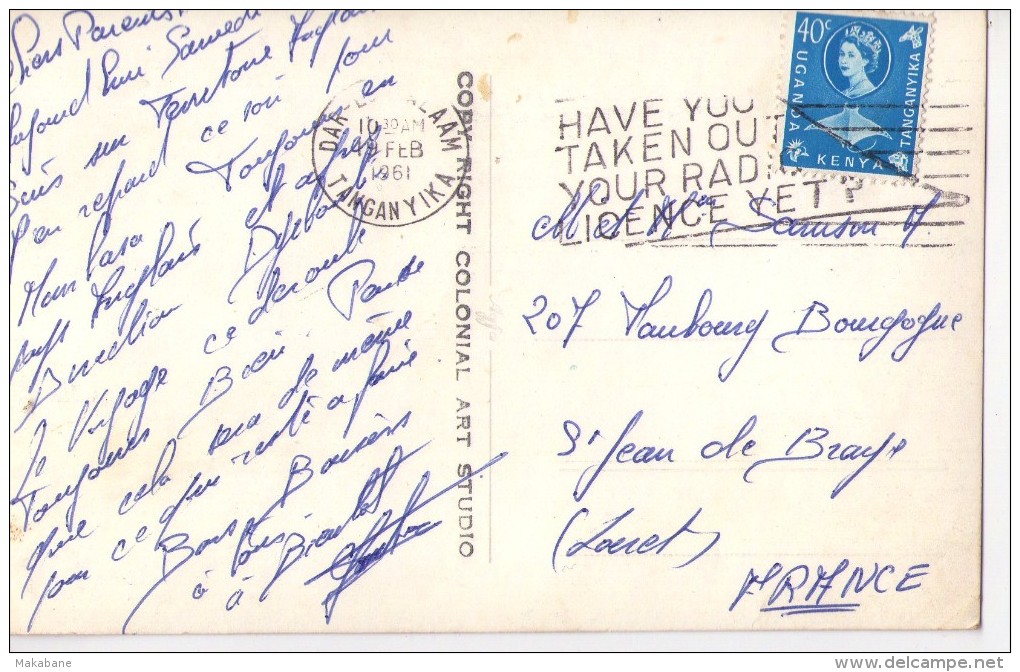 Chers Parents
Aujourd'hui Samedi
suis sur Territoire Anglais
l'on repart ce soir pour
Mombasa Toujours en
pays Anglais et après
Direction Djibouti
le Voyage ce déroule
Toujours Bien Pense
que cela sera de même
pour ce qui reste à faire
Bons Baisers
à tous
à Bientôt
COPYRIGHT COLONIAL ART STUDIO
DAR ES SALAAM
10 30 AM
FEB
1961
TANGANYIKA
HAVE YOU
TAKEN OUT
YOUR RADIO
LICENCE YET?
40c
UGANDA
KENYA
TANGANYIKA
M et Mme Samson A.
207 Faubourg Bourgogne
St Jean de Braye
(Loiret)
FRANCE
Makabane
delcampe.net